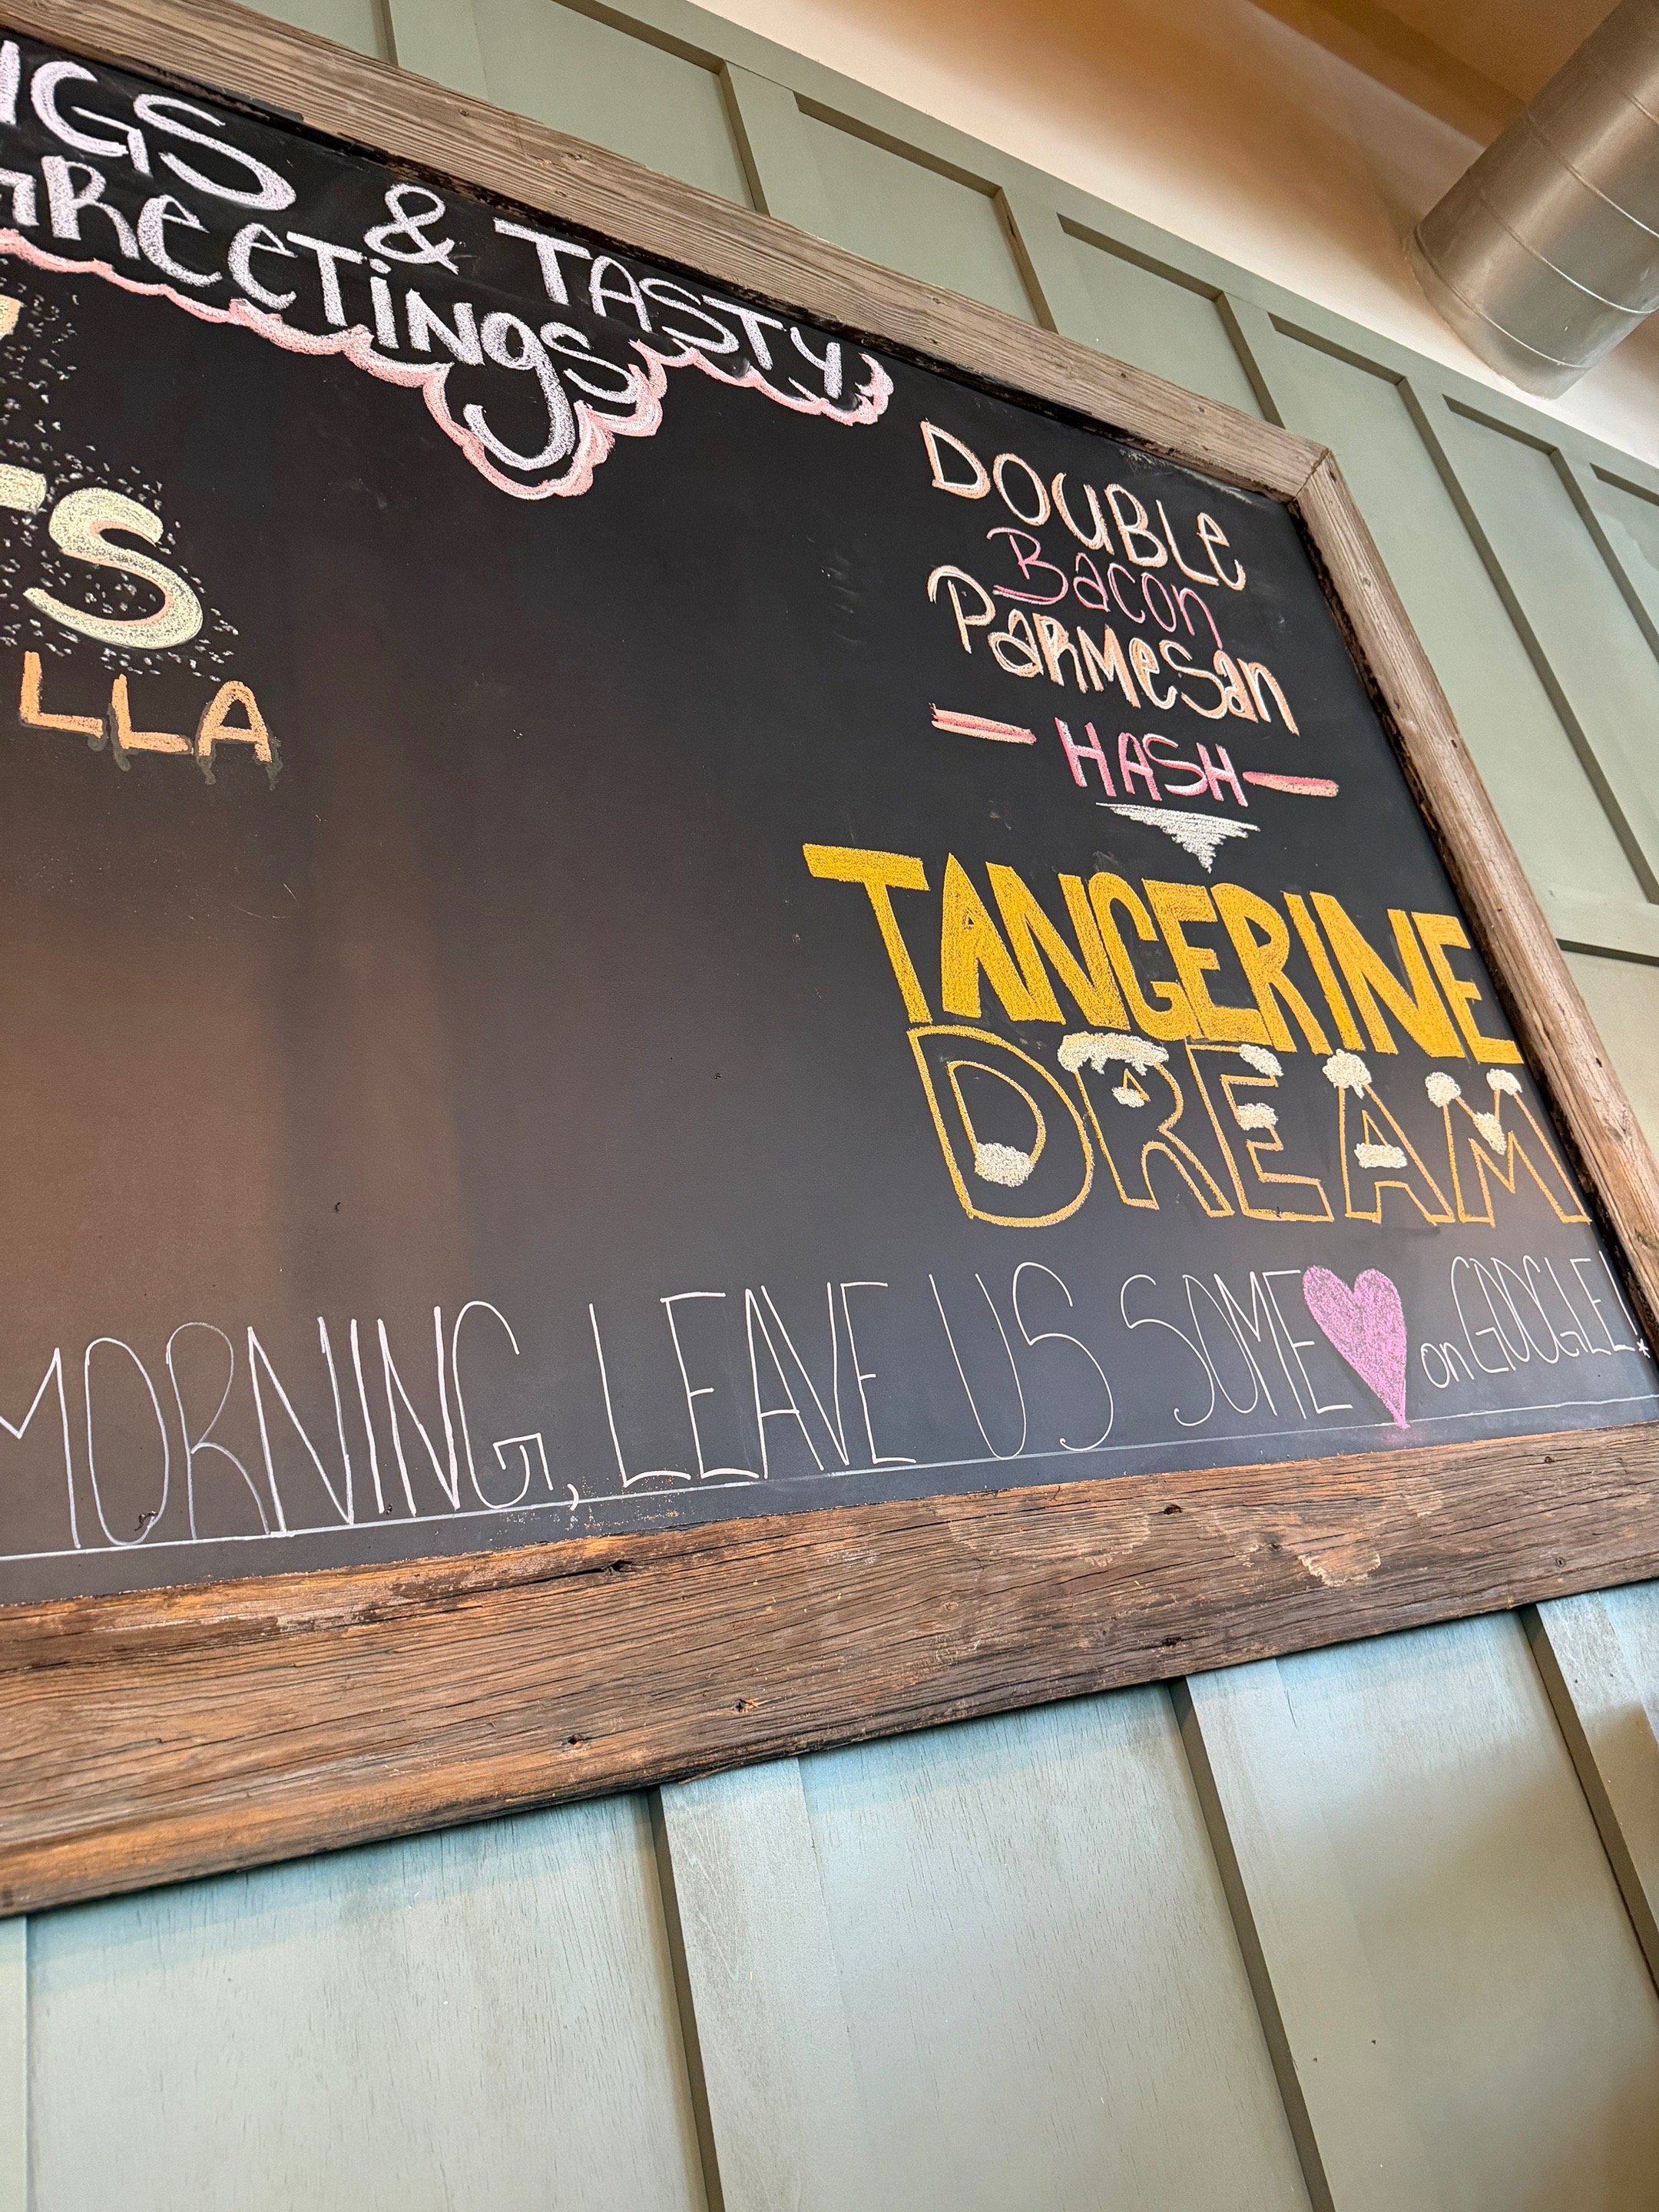 & TASTY
GREETINGS
DOUBLE
Bacon
Parmesan
HASH
TANGERINE
DREAM
MORNING, LEAVE US SOME on GOOGLE!